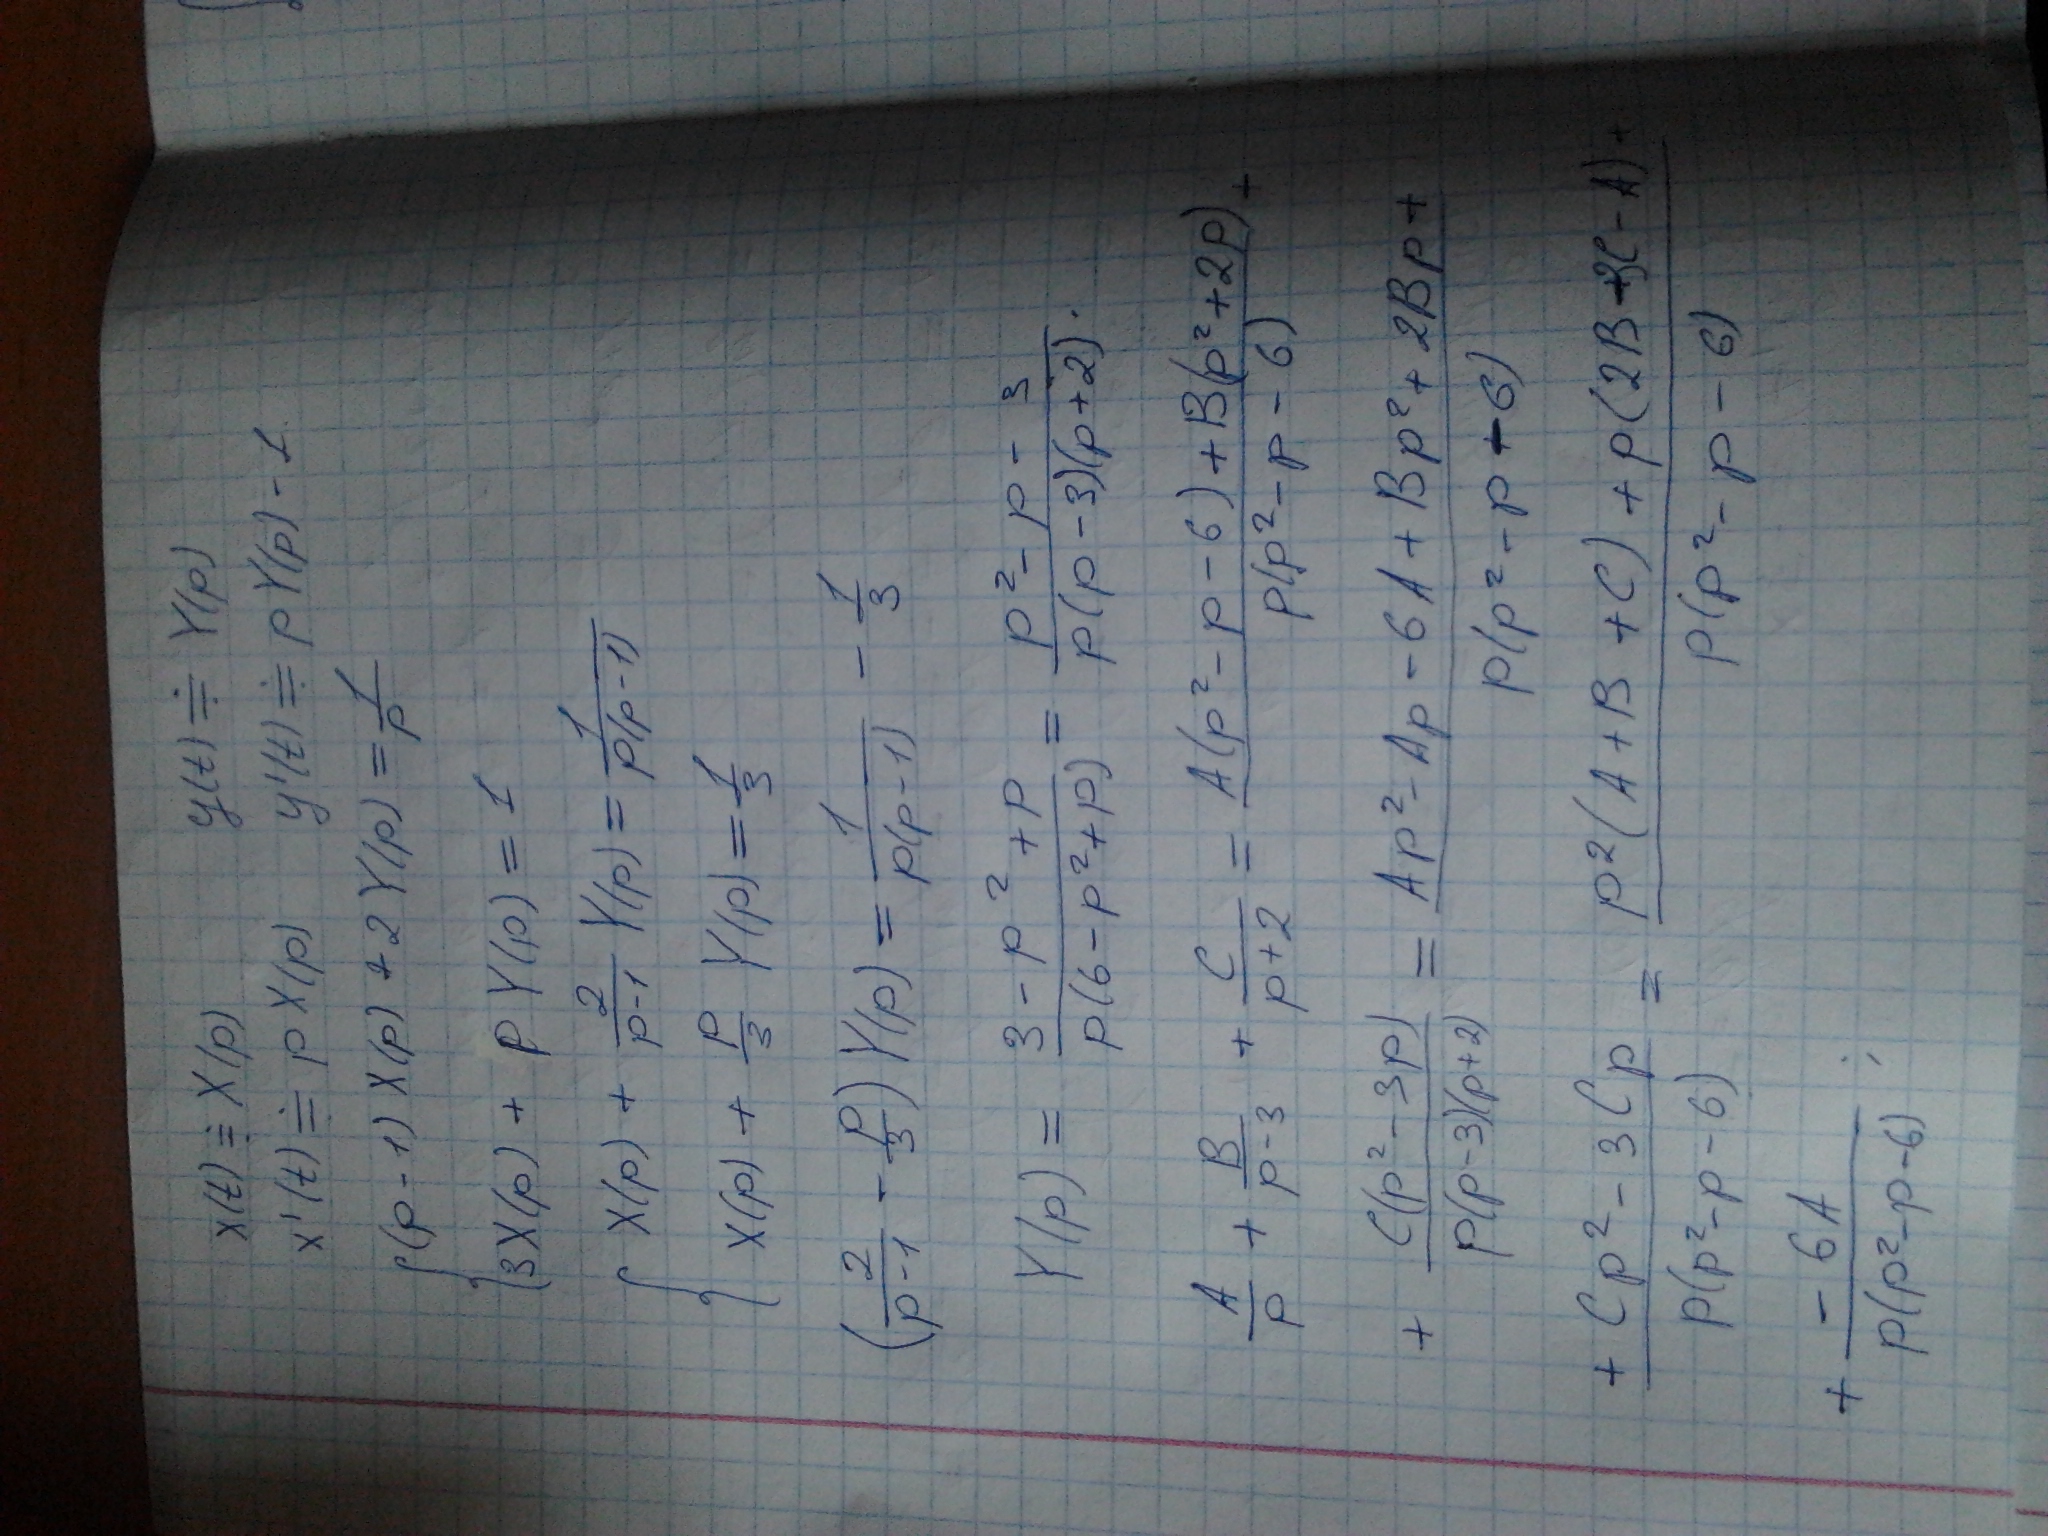 x(t) ≑ X(p) y(t) ≑ Y(p)
x'(t) ≑ pX(p) y'(t) ≑ pY(p) - 1
{ (p-1) X(p) + 2Y(p) = 1/p
3X(p) + pY(p) = 1
{ X(p) + 2/(p-1) Y(p) = 1/(p(p-1))
X(p) + p/3 Y(p) = 1/3
(2/(p-1) - p/3) Y(p) = 1/(p(p-1)) - 1/3
Y(p) = (3 - p² + p)/(p(6 - p² + p)) = (p² - p - 3)/(p(p-3)(p+2)).
A/p + B/(p-3) + C/(p+2) = (A(p² - p - 6) + B(p² + 2p))/(p(p² - p - 6)) +
+ C(p² - 3p)/(p(p-3)(p+2)) = (Ap² - Ap - 6A + Bp² + 2Bp +)/(p(p² - p - 6))
(+ Cp² - 3Cp)/(p(p² - p - 6)) = (p²(A + B + C) + p(2B - 3C - A) +)/(p(p² - p - 6))
+ (-6A)/(p(p² - p - 6)) ;